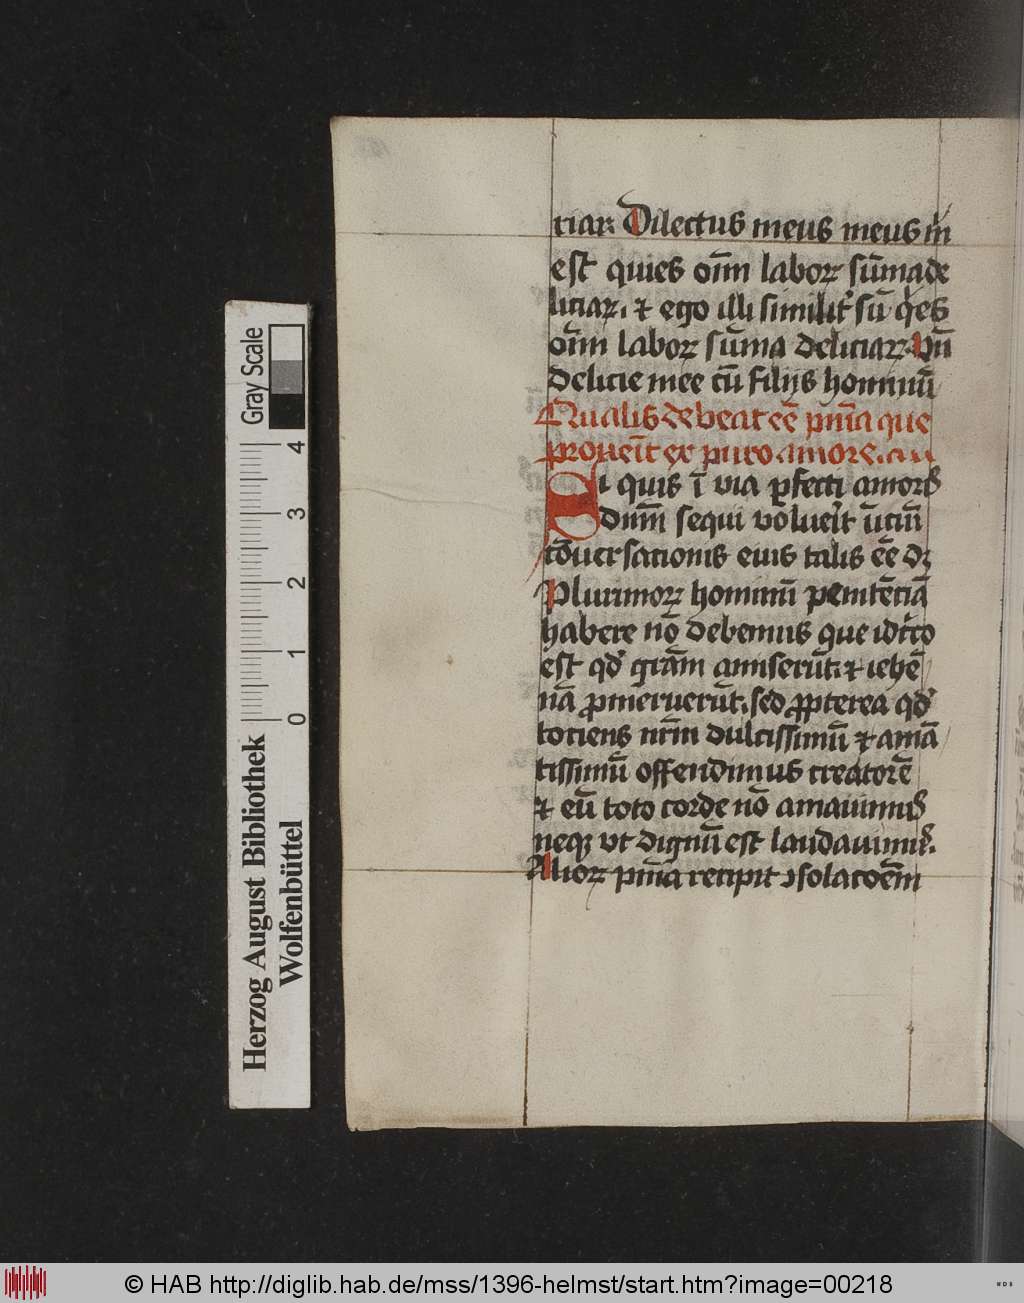 ciar: Dilectus meus meus m̄
est quies om̄n laboꝝ sūma de
liciaꝝ. ⁊ ego illi similit̕ sū q̄es
om̄n laboꝝ sūma deliciaꝝ. Vn̄
delicie mee cū filijs hominū
Qualis debeat eē pn̄ia que
prouen̄it ex puro amore.
Si quis ī via ꝑfecti amoris
dīnī sequi voluerit
cōuersacionis eius talis eē dꝫ
Plurimoꝝ hominū penitēciā
habere nō debemus que idcirco
est qď gr̄am amiserūt. ⁊ iehē
nā ꝓmeruerūt. sed ꝓpterea qď
tociens nr̄m dulcissimū ⁊ amā
tissimū offendimus creatorē
⁊ eū toto corde nō amauimus
neqꝫ vt dignū est laudauimus.
Alioꝝ pn̄ia recipit ꝯsolacōem
Gray Scale
4
3
2
1
0
Herzog August Bibliothek
Wolfenbüttel
© HAB http://diglib.hab.de/mss/1396-helmst/start.htm?image=00218
WDB